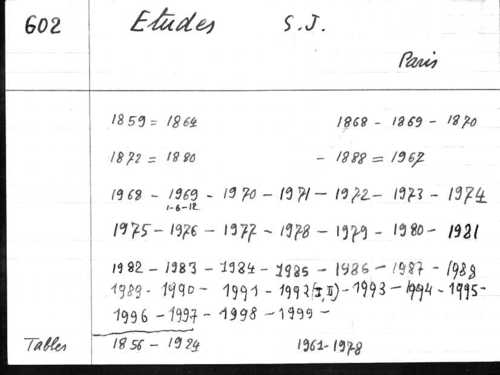 602 Etudes S.J.
Paris
1859 = 1864 1868 - 1869 - 1870
1872 = 1880 - 1888 = 1967
1968 - 1969 - 1970 - 1971 - 1972 - 1973 - 1974
1-6-12
1975 - 1976 - 1977 - 1978 - 1979 - 1980 - 1981
1982 - 1983 - 1984 - 1985 - 1986 - 1987 - 1988
1989 - 1990 - 1991 - 1992 (I, II) - 1993 - 1994 - 1995 -
1996 - 1997 - 1998 - 1999 -
Tables 1856 - 1924 1961-1978